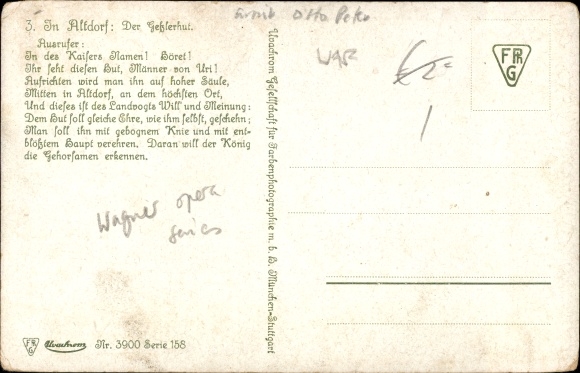 3. In Altdorf: Der Geßlerhut.
Ausrufer:
In des Kaisers Namen! Höret!
Ihr seht diesen Hut, Männer von Uri!
Aufrichten wird man ihn auf hoher Säule,
Mitten in Altdorf, an dem höchsten Ort,
Und dieses ist des Landvogts Will und Meinung:
Dem Hut soll gleiche Ehre, wie ihm selbst, geschehn;
Man soll ihn mit gebognem Knie und mit ent-
blößtem Haupt verehren. Daran will der König
die Gehorsamen erkennen.
Wagner opera
series
FPhG
Uvachrom Nr. 3900 Serie 158
Uvachrom Gesellschaft für Farbenphotographie m. b. H. München-Stuttgart
Otto Peko
£2=
1
FPhG